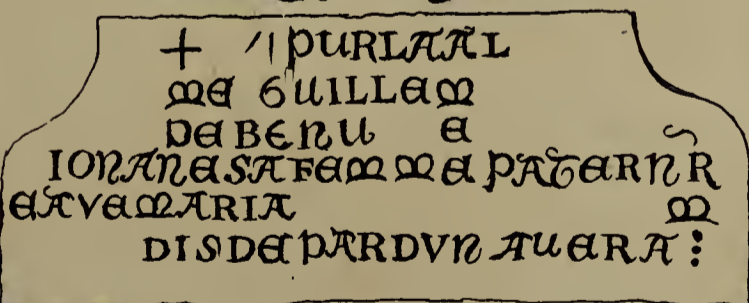 + PUR LA AL
ME GUILLEM
DE BENU E
IONANE SA FEMME PATERNR
E AVE MARIA M
DIS DE PARDVN AUERA ⋮